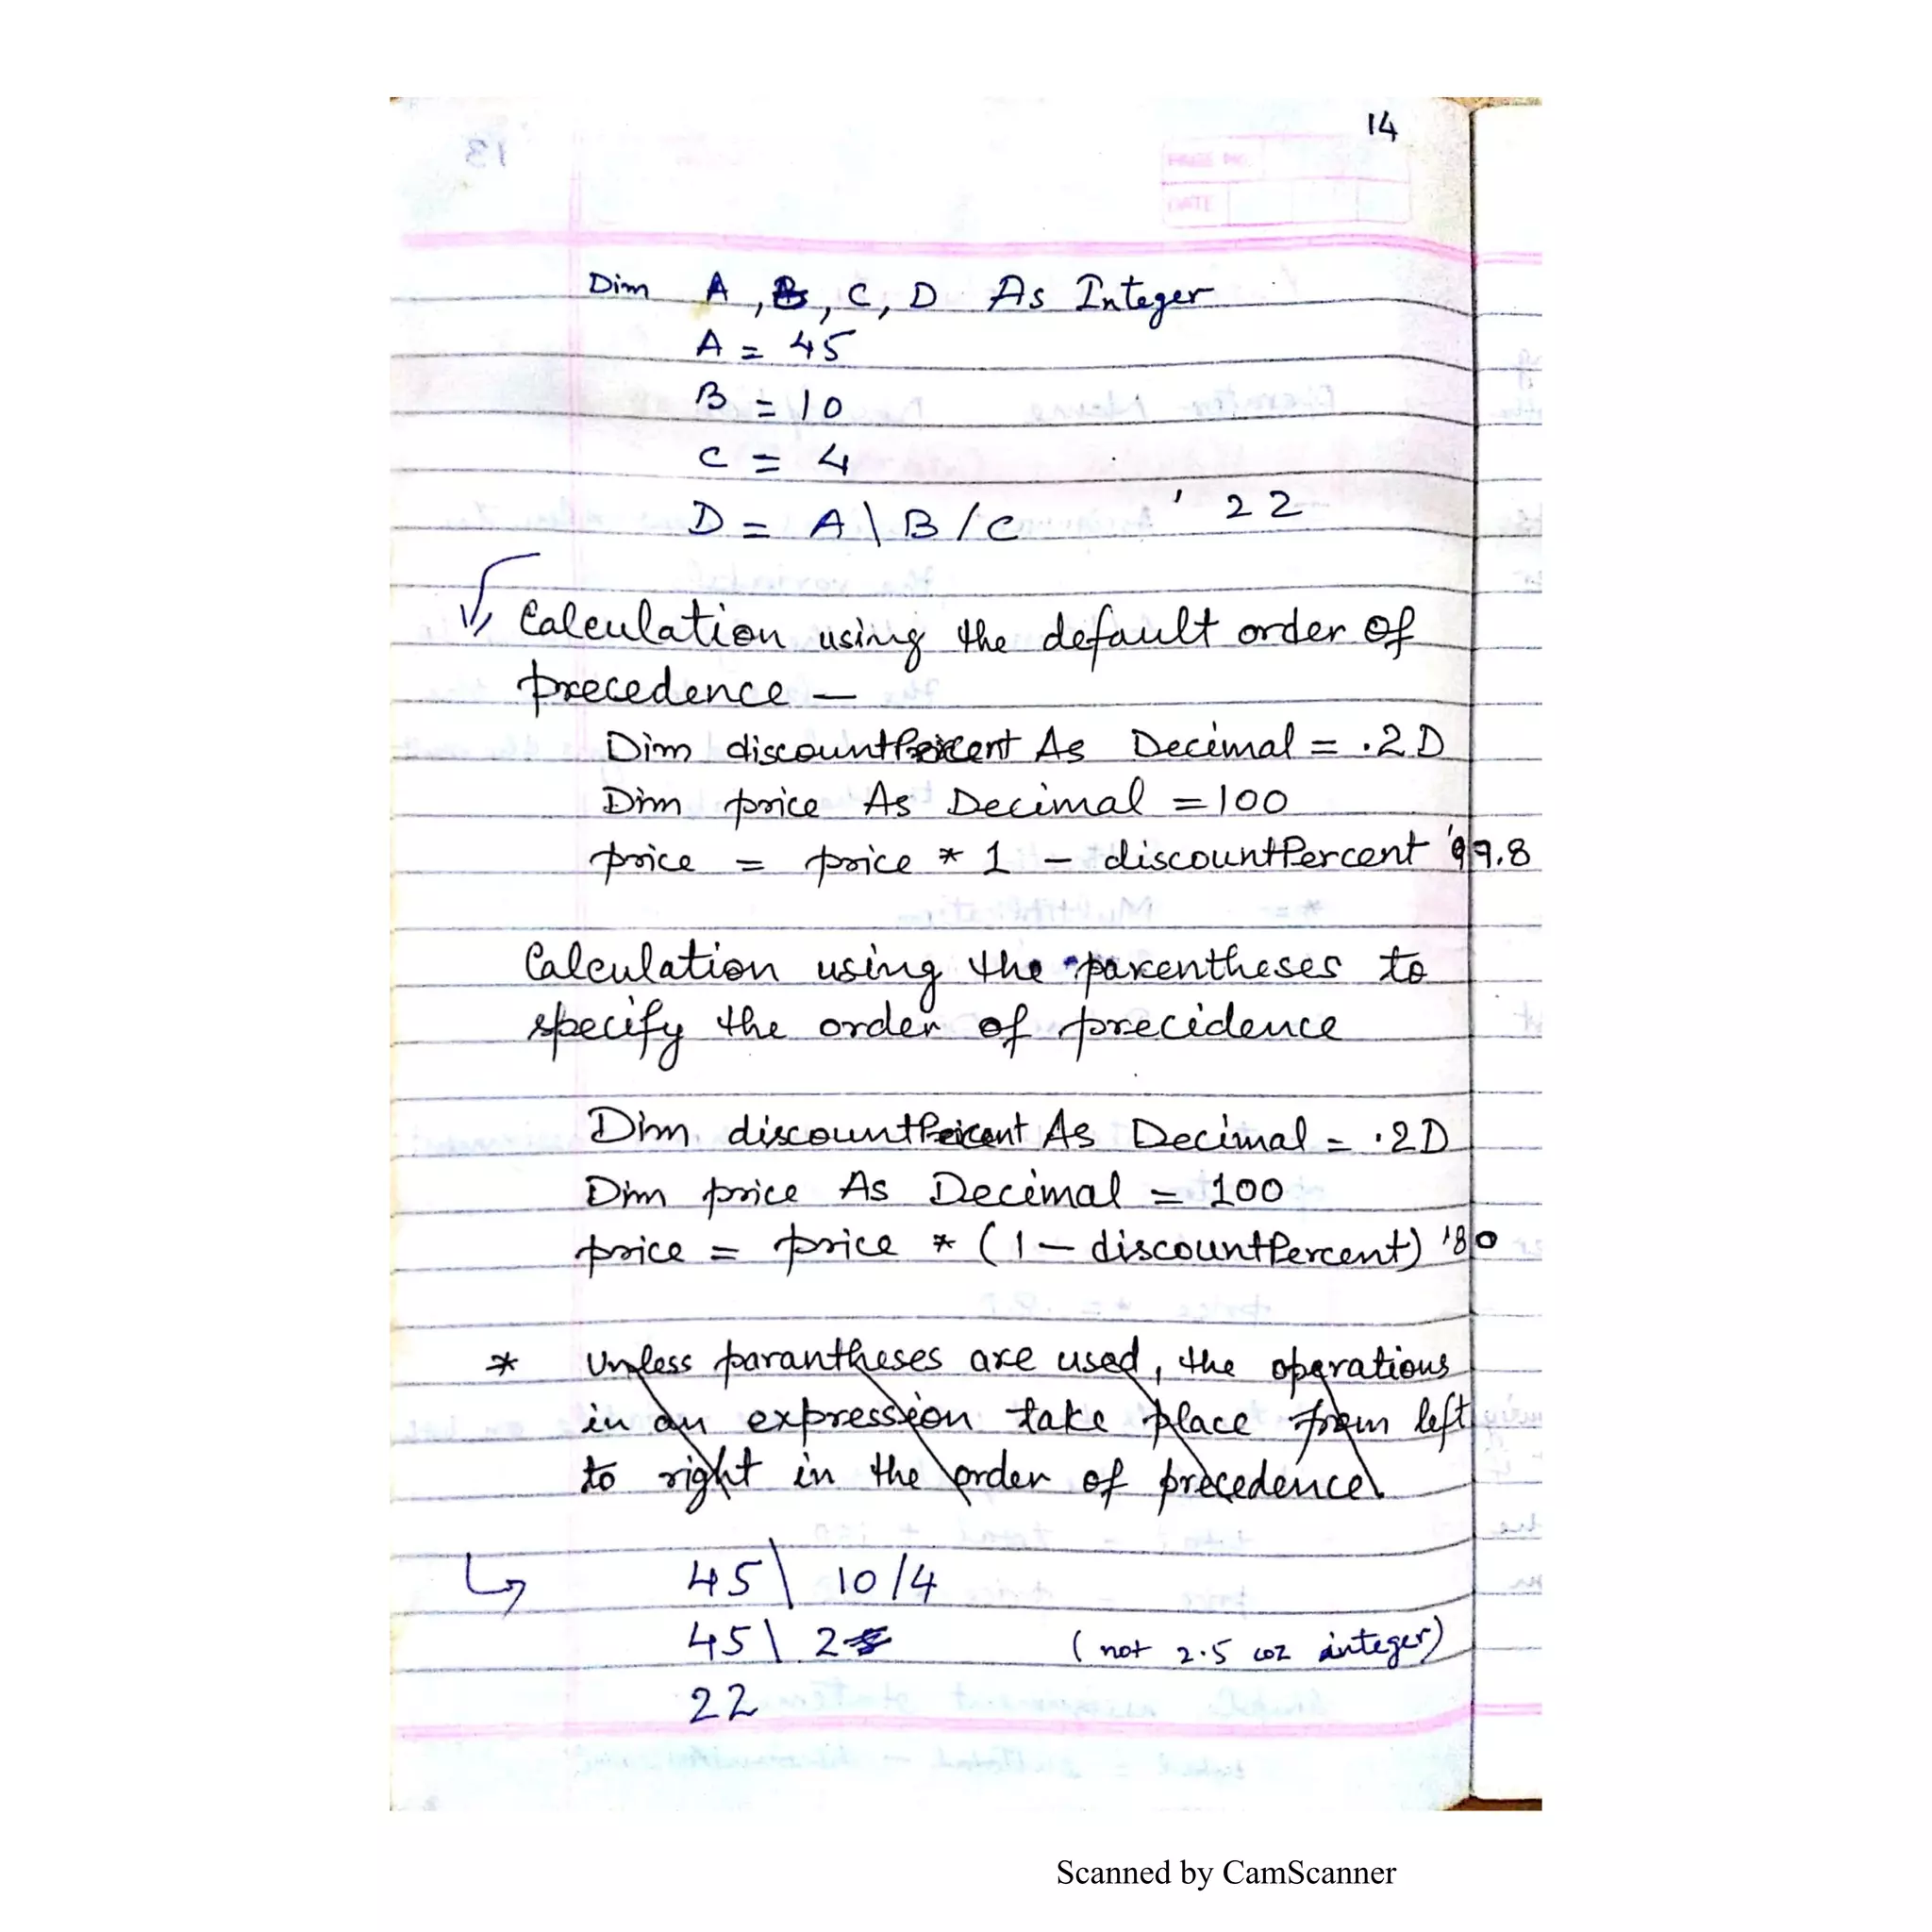 14
13
PAGE NO.
DATE
Dim A, B, C, D As Integer
A = 45
B = 10
C = 4
D = A \ B / C ' 22
Calculation using the default order of
precedence —
Dim discountPercent As Decimal = .2D
Dim price As Decimal = 100
price = price * 1 - discountPercent '99.8
Calculation using the parentheses to
specify the order of precidence
Dim discountPercent As Decimal = .2D
Dim price As Decimal = 100
price = price * (1 - discountPercent) '80
* Unless parantheses are used, the operations
in an expression take place from left
to right in the order of precedence.
45 \ 10/4
45 \ 2 (not 2.5 coz integer)
22
Scanned by CamScanner